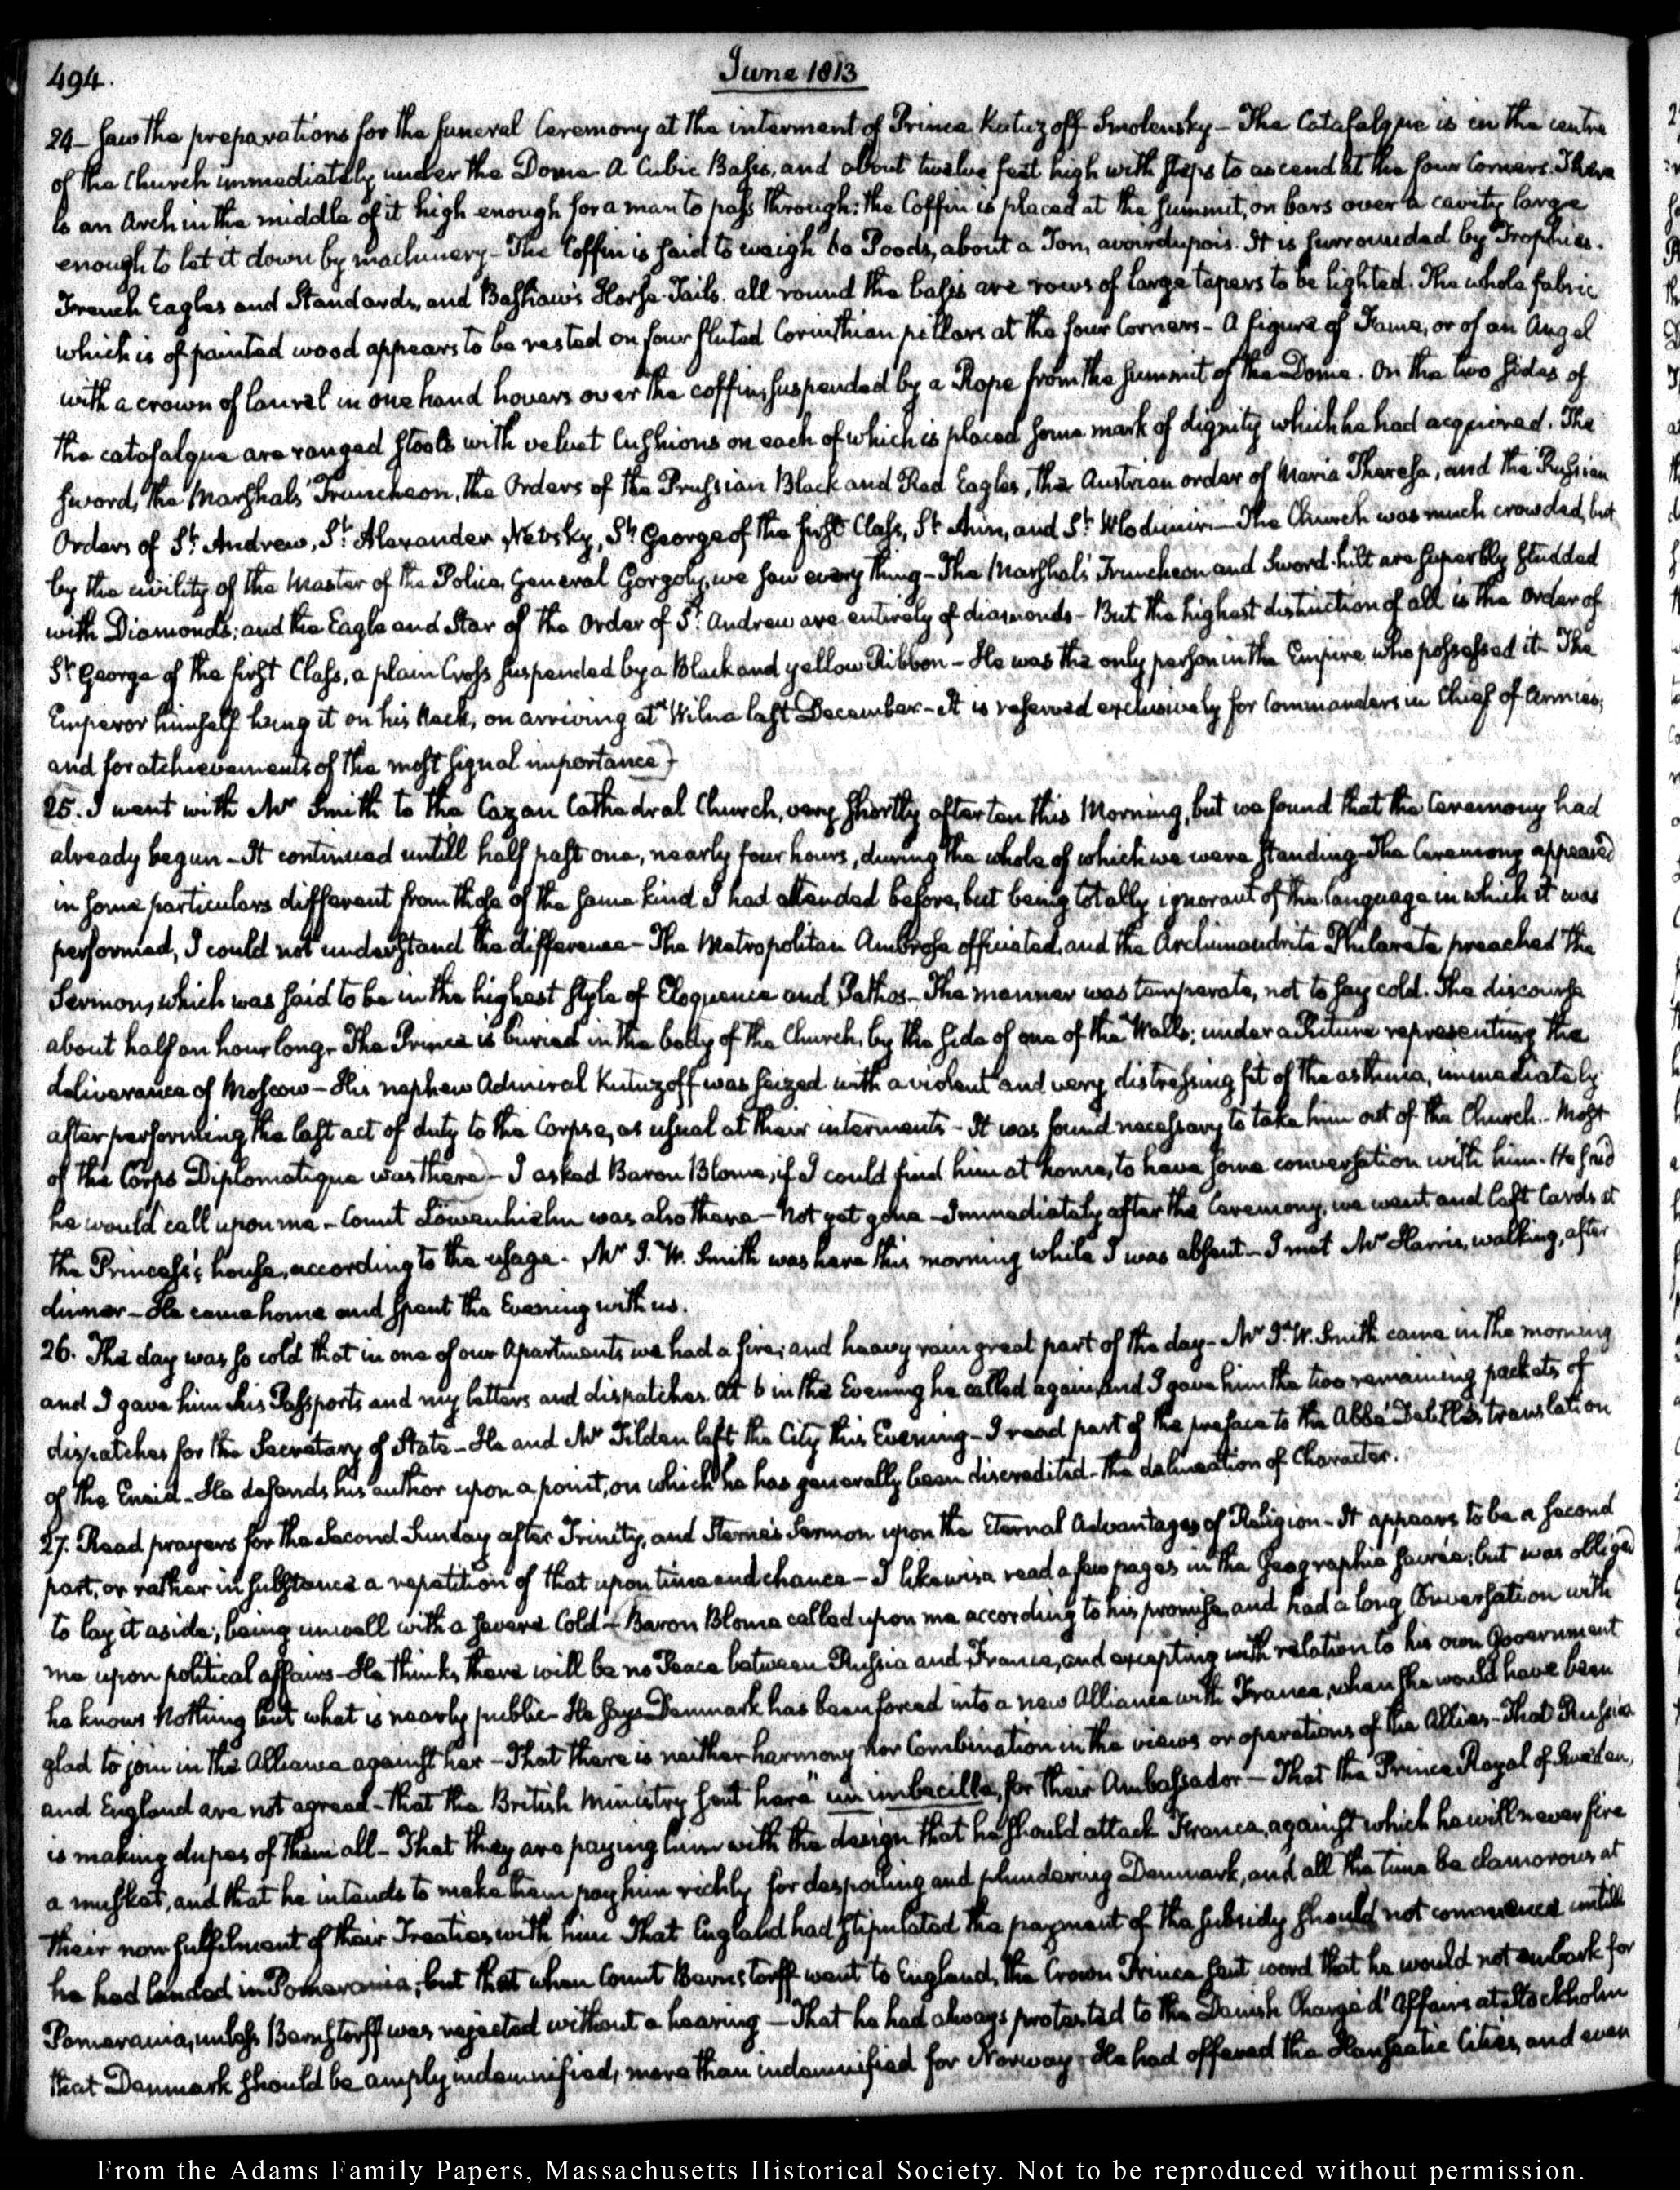 494.
June 1813
24 – Saw the preparations for the funeral Ceremony at the interment of Prince Kutuzoff Smolensky – The Catafalque is in the centre
of the Church immediately under the Dome A Cubic Basis, and about twelve feet high with steps to ascend at the four Corners. There
is an Arch in the middle of it high enough for a man to pass through; the Coffin is placed at the summit, on bars over a cavity large
enough to let it down by machinery – The Coffin is said to weigh 60 Poods, about a Ton, avoirdupois. It is surrounded by Trophies.
French Eagles and Standards, and Bashaw's Horse-Tails. all round the basis are rows of large tapers to be lighted. The whole fabric
which is of painted wood appears to be rested on four fluted Corinthian pillars at the four Corners – A figure of Fame, or of an Angel
with a crown of laurel in one hand hovers over the coffin, suspended by a Rope from the summit of the Dome. On the two sides of
the catafalque are ranged stools with velvet Cushions on each of which is placed some mark of dignity which he had acquired. The
sword, the Marshals' Truncheon, the Orders of the Prussian Black and Red Eagles, the Austrian order of Maria Theresa, and the Russian
Orders of St. Andrew, St. Alexander Newsky, St. George of the first Class, St. Ann, and St. Wlodimir. – The Church was much crowded, but
by the civility of the Master of the Police, General Gorgoly, we saw every thing – The Marshals' Truncheon and Sword-hilt are superbly studded
with Diamonds; and the Eagle and Star of the Order of St. Andrew are entirely of diamonds – But the highest distinction of all is the Order of
St. George of the first Class, a plain Cross suspended by a Black and yellow Ribbon – He was the only person in the Empire who possessed it – The
Emperor himself hung it on his Neck, on arriving at Wilna last December – It is reserved exclusively for Commanders in Chief of Armies;
and for atchievements of the most signal importance)–
25. I went with Mr Smith to the Cazan Cathedral Church, very shortly after ten this Morning, but we found that the Ceremony had
already begun – It continued untill half past one, nearly four hours, during the whole of which we were standing – The Ceremony appeared
in some particulars different from those of the same kind I had attended before, but being totally ignorant of the language in which it was
performed, I could not understand the difference – The Metropolitan Ambrose officiated, and the Archimandrite Philarete preached the
Sermon, which was said to be in the highest style of Eloquence and Pathos – The manner was temperate, not to say cold. The discourse
about half an hour long – The Prince is buried in the body of the Church, by the side of one of the Walls; under a Picture representing the
deliverance of Moscow – His nephew Admiral Kutuzoff was seized with a violent and very distressing fit of the asthma, immediately
after performing the last act of duty to the Corpse, as usual at their interments – It was found necessary to take him out of the Church – Most
of the Corps Diplomatique was there) – I asked Baron Blome, if I could find him at home, to have some conversation with him. He said
he would call upon me – Count Löwenhielm was also there – Not yet gone – Immediately after the Ceremony, we went and left Cards at
the Princess's house, according to the usage – Mr J. W. Smith was here this morning while I was absent – I met Mr Harris, walking, after
dinner – He came home and spent the Evening with us.
26. The day was so cold that in one of our Apartments we had a fire; and heavy rain great part of the day – Mr J. W. Smith came in the morning
and I gave him his Passports and my letters and dispatches. At 6 in the Evening he called again, and I gave him the two remaining packets of
dispatches for the Secretary of State – He and Mr Tilden left the City this Evening – I read part of the preface to the Abbé Delille's translation
of the Eneid – He defends his author upon a point, on which he has generally been discredited – the delineation of Character.
27. Read prayers for the Second Sunday after Trinity, and Sterne's Sermon upon the Eternal Advantages of Religion – It appears to be a second
part, or rather in substance a repetition of that upon time and chance – I likewise read a few pages in the Geographie Sacrée; but was obliged
to lay it aside; being unwell with a severe Cold – (Baron Blome called upon me according to his promise, and had a long Conversation with
me upon political affairs – He thinks there will be no Peace between Russia and France, and excepting with relation to his own Government
he knows Nothing but what is nearly public – He says Denmark has been forced into a new Alliance with France, when she would have been
glad to join in the Alliance against her – That there is neither harmony nor Combination in the views or operations of the Allies – That Russia
and England are not agreed – that the British Ministry sent here "un imbecille, for their Ambassador – That the Prince Royal of Sweden,
is making dupes of them all – That they are paying him with the design that he should attack France, against which he will never fire
a musket, and that he intends to make them pay him richly for despoiling and plundering Denmark, and all the time be clamorous at
their non fulfilment of their Treaties with him That England had stipulated the payment of the subsidy should not commence untill
he had landed in Pomerania; but that when Count Bernstorff went to England, the Crown Prince sent word that he would not embark for
Pomerania, unless Bernstorff was rejected without a hearing – That he had always protested to the Danish Chargé d'Affairs at Stockholm
that Denmark should be amply indemnified, more than indemnified for Norway – He had offered the Hanseatic Cities, and even
From the Adams Family Papers, Massachusetts Historical Society. Not to be reproduced without permission.